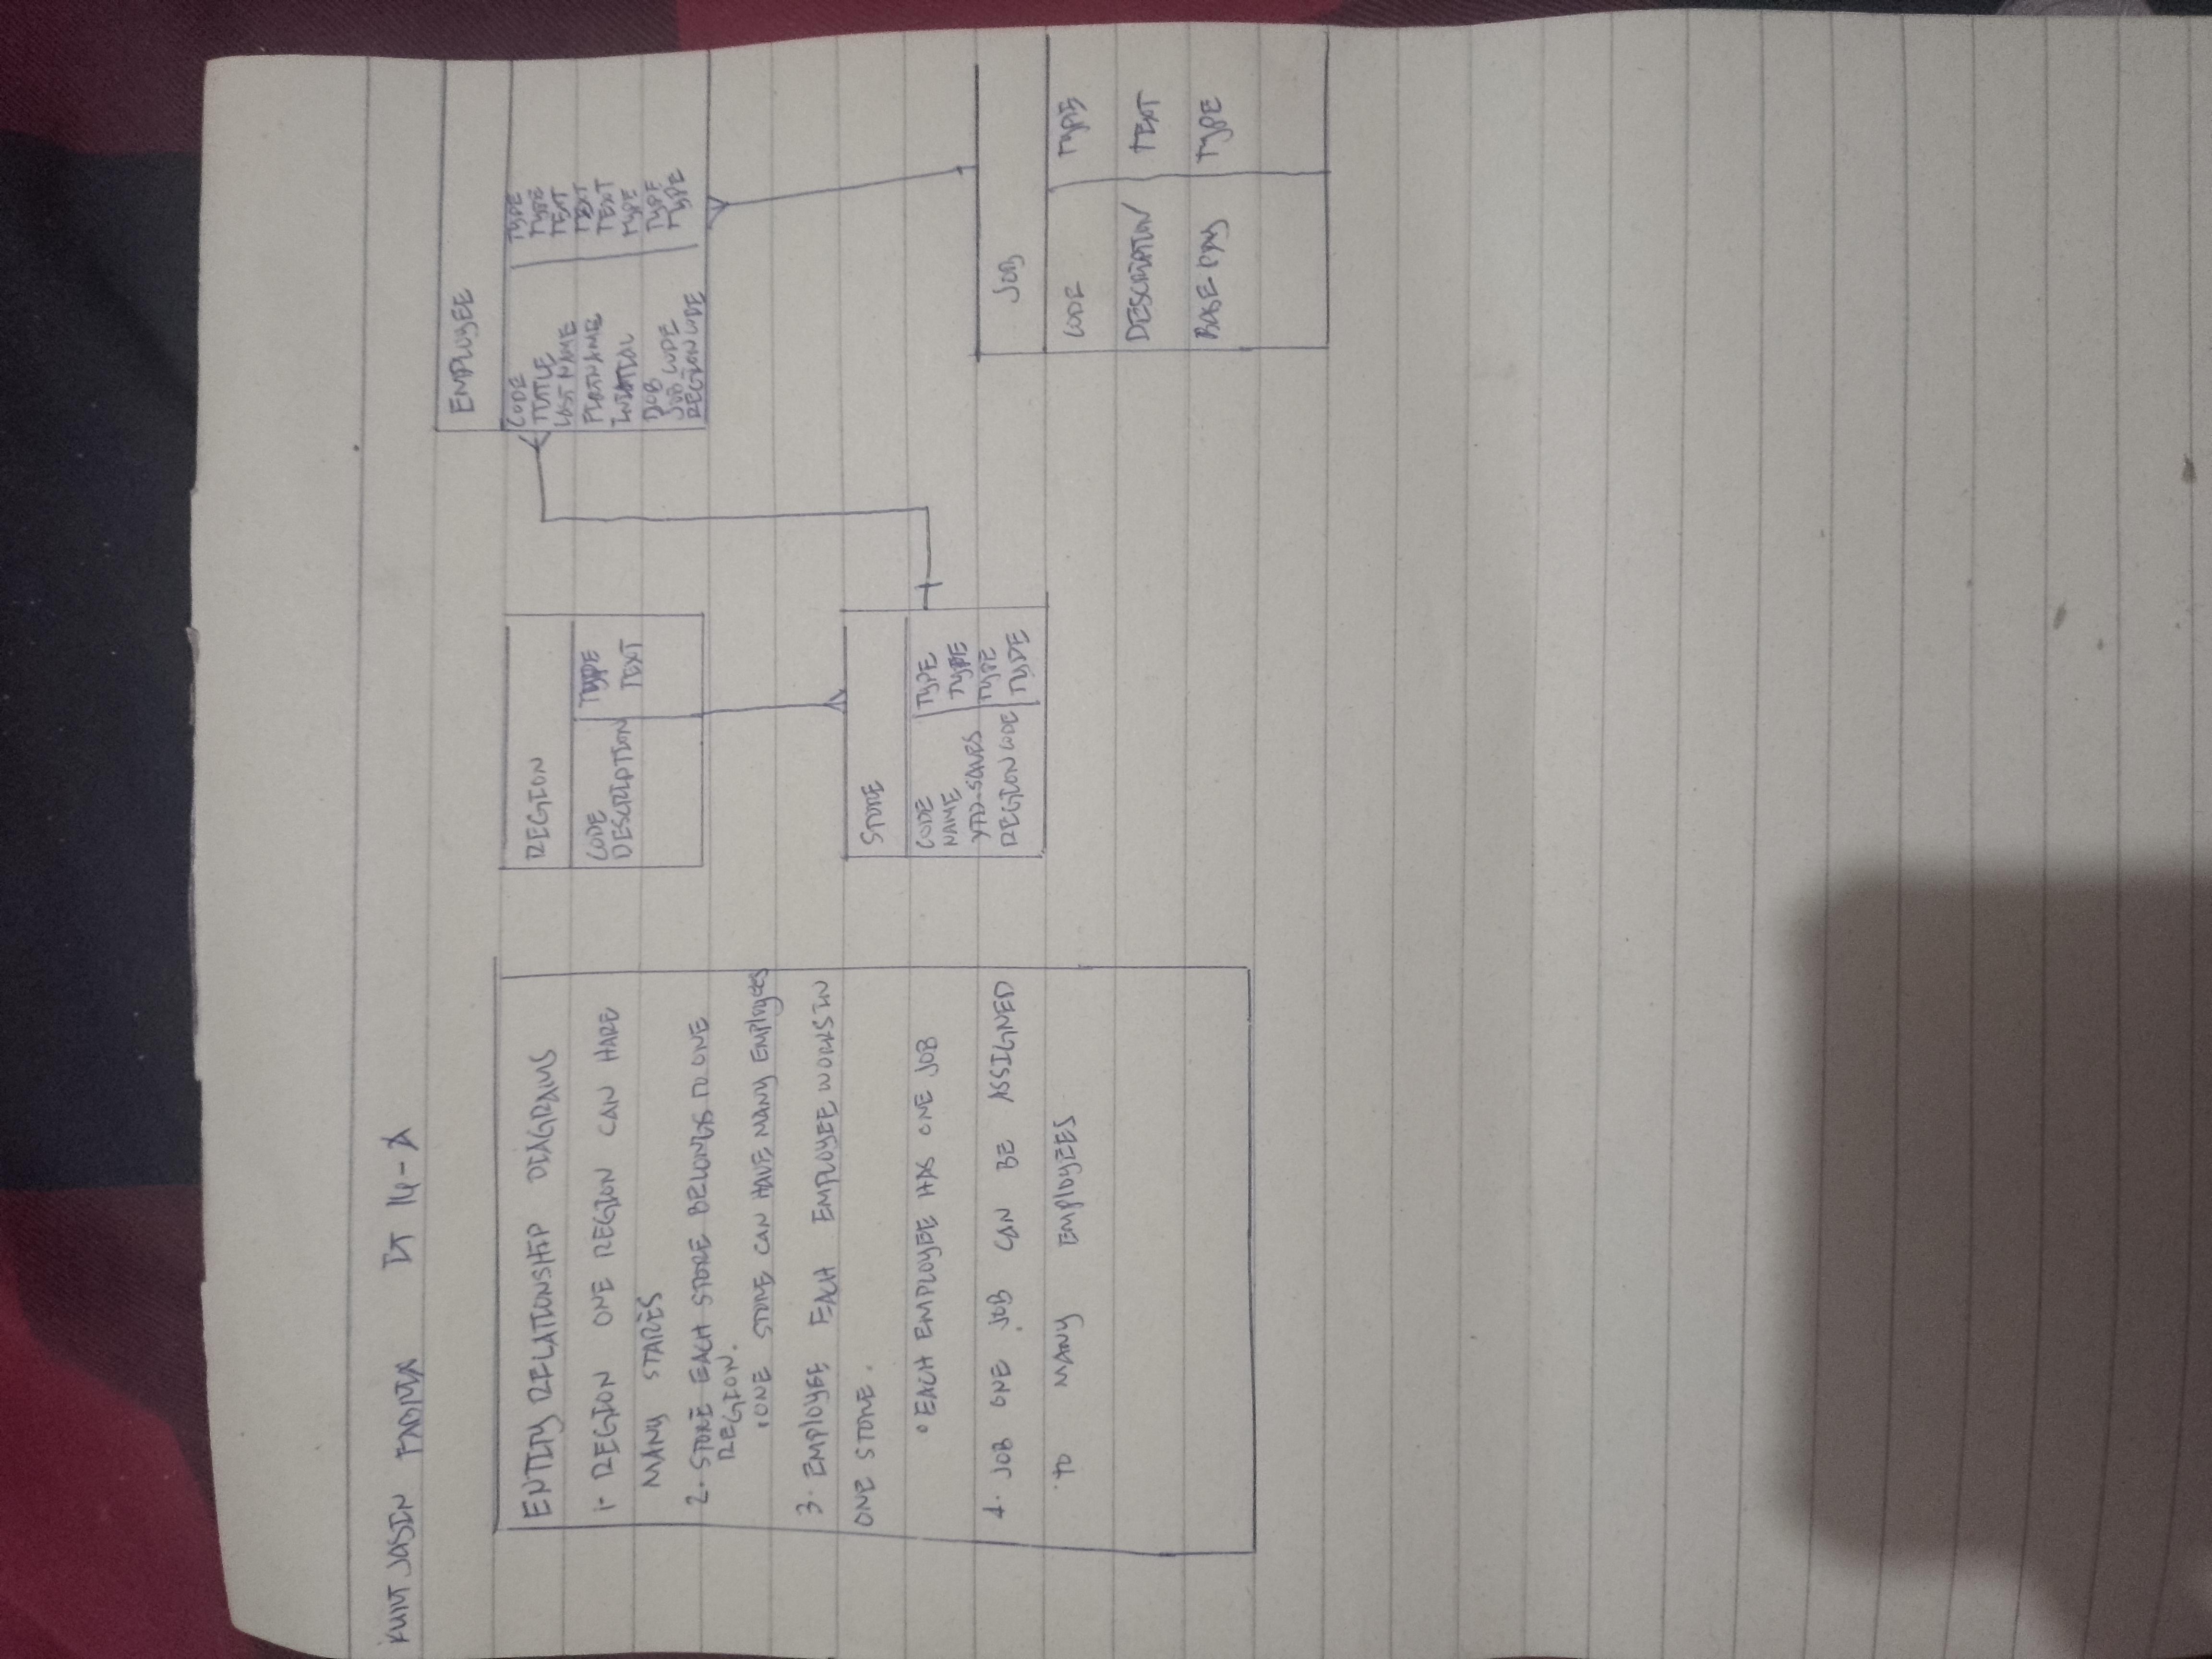 JASIN
ENTITY RELATIONSHIP DIAGRAMS
1- REGION ONE REGION CAN HARE
MANY STARES
2- STORE EACH STORE BELONGS TO ONE
REGION.
.ONE STORE CAN HAVE MANY EMPLOYEES
3. EMPLOYEE EACH EMPLOYEE WORKS IN
ONE STORE.
• EACH EMPLOYEE HAS ONE JOB
4. JOB ONE JOB CAN BE ASSIGNED
TO MANY EMPLOYEES
REGION
CODE TYPE
DESCRIPTION TEXT
STORE
CODE TYPE
NAME TYPE
TYPE
REGION CODE TYPE
EMPLOYEE
CODE TYPE
TITLE TYPE
LAST NAME TEXT
TEXT
INITIAL TEXT
DOB TYPE
JOB CODE TYPE
REGION CODE TYPE
JOB
CODE TYPE
DESCRIPTION TEXT
BASE-PAY TYPE